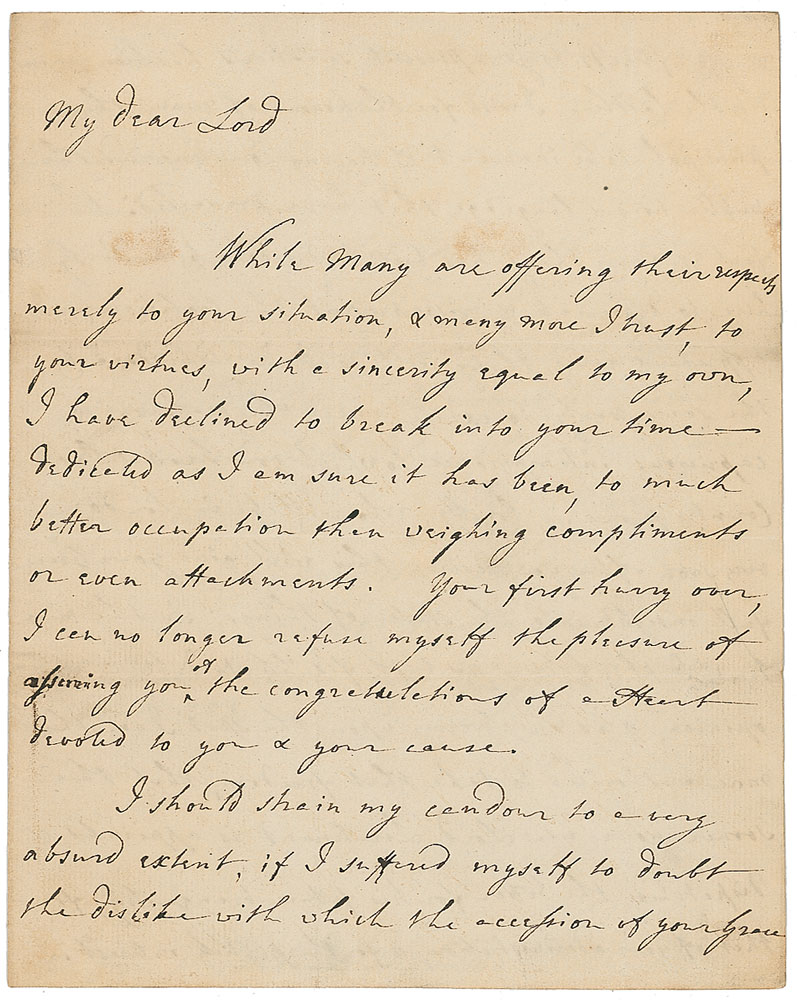 My dear Lord
While Many are offering their respects
merely to your situation, & many more I trust, to
your virtues, with a sincerity equal to my own,
I have declined to break into your time —
dedicated as I am sure it has been, to much
better occupation than weighing compliments
or even attachments. Your first hurry over,
I can no longer refuse myself the pleasure of
assuring you, of the congratulations of a Heart
devoted to you & your cause.
I should strain my candour to a very
absurd extent, if I suffered myself to doubt
the dislike with which the accession of your Grace